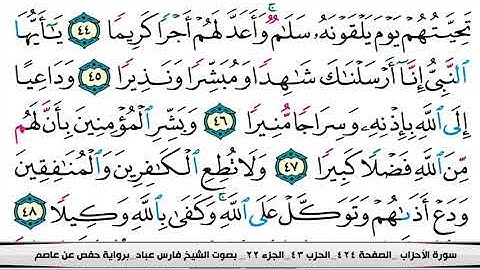 تَحِيَّتُهُمْ يَوْمَ يَلْقَوْنَهُۥ سَلَٰمٌۚ وَأَعَدَّ لَهُمْ أَجْرًا كَرِيمًا ٤٤ يَٰٓأَيُّهَا
ٱلنَّبِيُّ إِنَّآ أَرْسَلْنَٰكَ شَٰهِدًا وَمُبَشِّرًا وَنَذِيرًا ٤٥ وَدَاعِيًا
إِلَى ٱللَّهِ بِإِذْنِهِۦ وَسِرَاجًا مُّنِيرًا ٤٦ وَبَشِّرِ ٱلْمُؤْمِنِينَ بِأَنَّ لَهُم
مِّنَ ٱللَّهِ فَضْلًا كَبِيرًا ٤٧ وَلَا تُطِعِ ٱلْكَٰفِرِينَ وَٱلْمُنَٰفِقِينَ
وَدَعْ أَذَىٰهُمْ وَتَوَكَّلْ عَلَى ٱللَّهِۚ وَكَفَىٰ بِٱللَّهِ وَكِيلًا ٤٨
سورة الأحزاب _الصفحة ٤٢٤_ الحزب ٤٣_ الجزء ٢٢ _ بصوت الشيخ فارس عباد_ برواية حفص عن عاصم